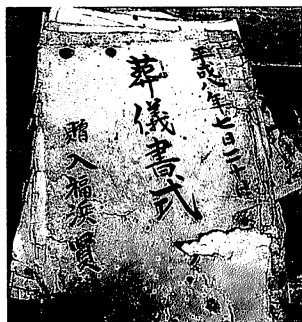 平成八年七月二十日
葬儀書式
入福浜